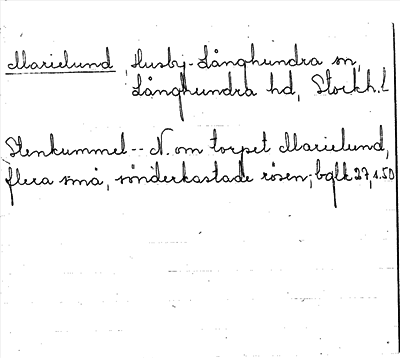 Marielund, Husby-Långhundra sn,
Långhundra hd, Stockh.l
Stenkummel -- N. om torpet Marielund,
flera små, sönderkastade rösen; bglk 27, s. 50